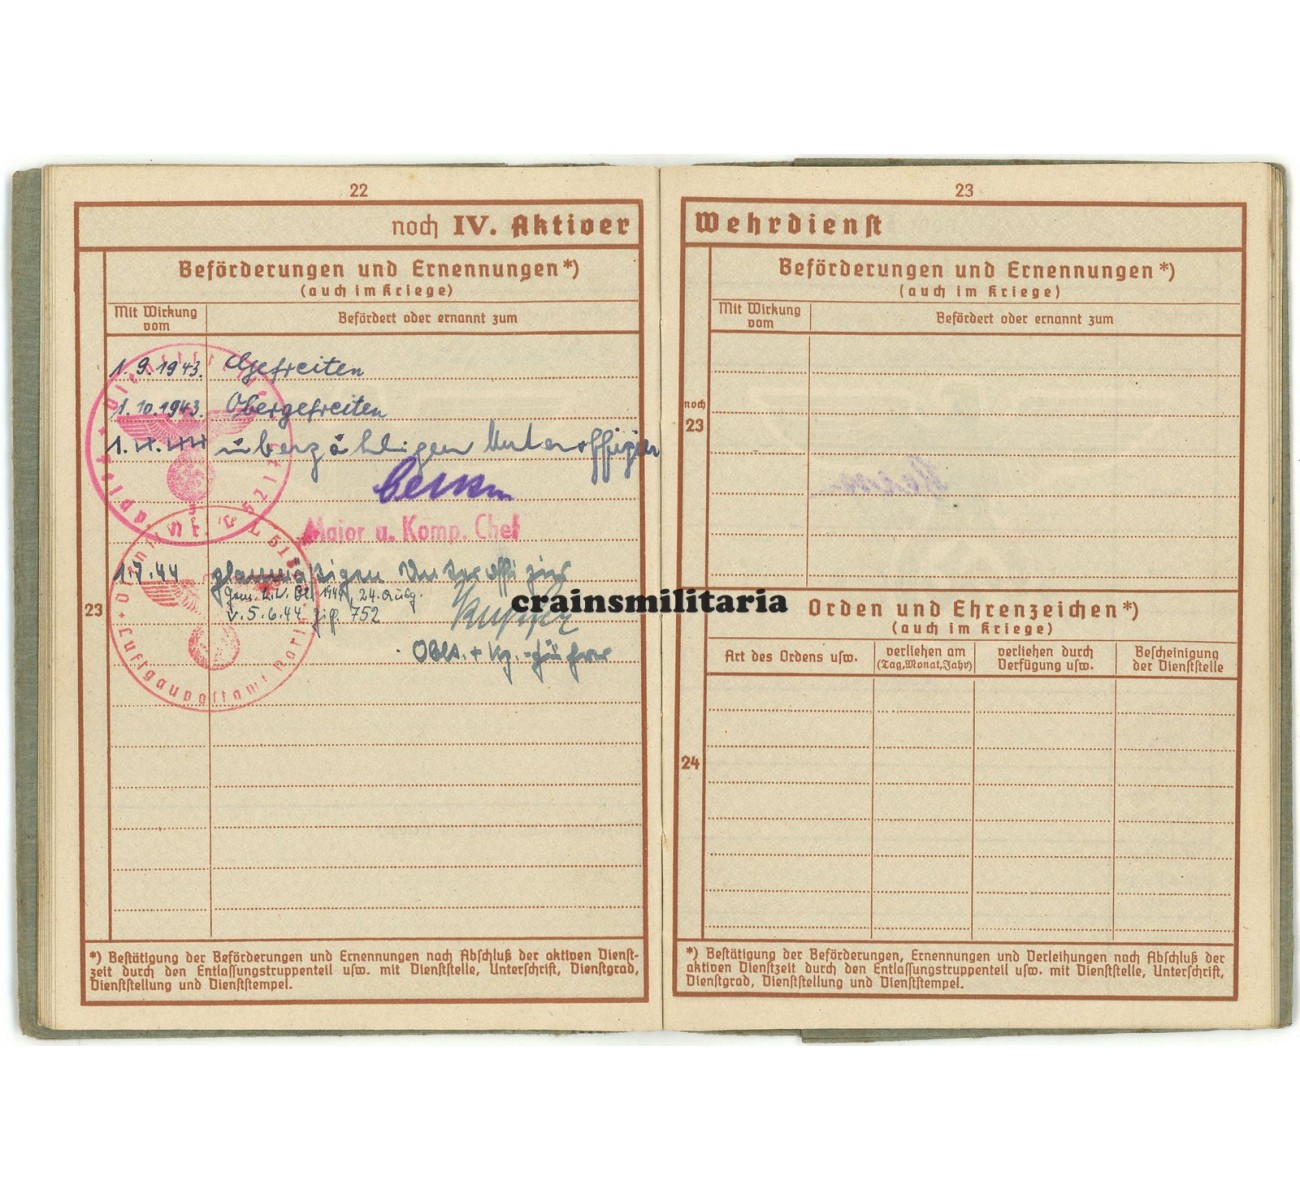 22
noch IV. Aktiver
Beförderungen und Ernennungen*)
(auch im Kriege)
Mit Wirkung vom
Befördert oder ernannt zum
1.9.1943. Gefreiten
1.10.1943. Obergefreiten
überzähligen Unteroffizier
Major u. Komp. Chef
1.7.44 planmäßigen Unteroffizier
24. Ausg.
v. 5.6.44 Zif. 752
crainsmilitaria
Oblt. + Kp.-Führer
23
Luftgaupostamt Paris
*) Bestätigung der Beförderungen und Ernennungen nach Abschluß der aktiven Dienst-
zeit durch den Entlassungstruppenteil usw. mit Dienststelle, Unterschrift, Dienstgrad,
Dienststellung und Dienststempel.
23
Wehrdienst
Beförderungen und Ernennungen*)
(auch im Kriege)
Mit Wirkung vom
Befördert oder ernannt zum
noch
23
Orden und Ehrenzeichen*)
(auch im Kriege)
Art des Ordens usw.
verliehen am
(Tag, Monat, Jahr)
verliehen durch
Verfügung usw.
Bescheinigung
der Dienststelle
24
*) Bestätigung der Beförderungen, Ernennungen und Verleihungen nach Abschluß der
aktiven Dienstzeit durch den Entlassungstruppenteil usw. mit Dienststelle, Unterschrift,
Dienstgrad, Dienststellung und Dienststempel.